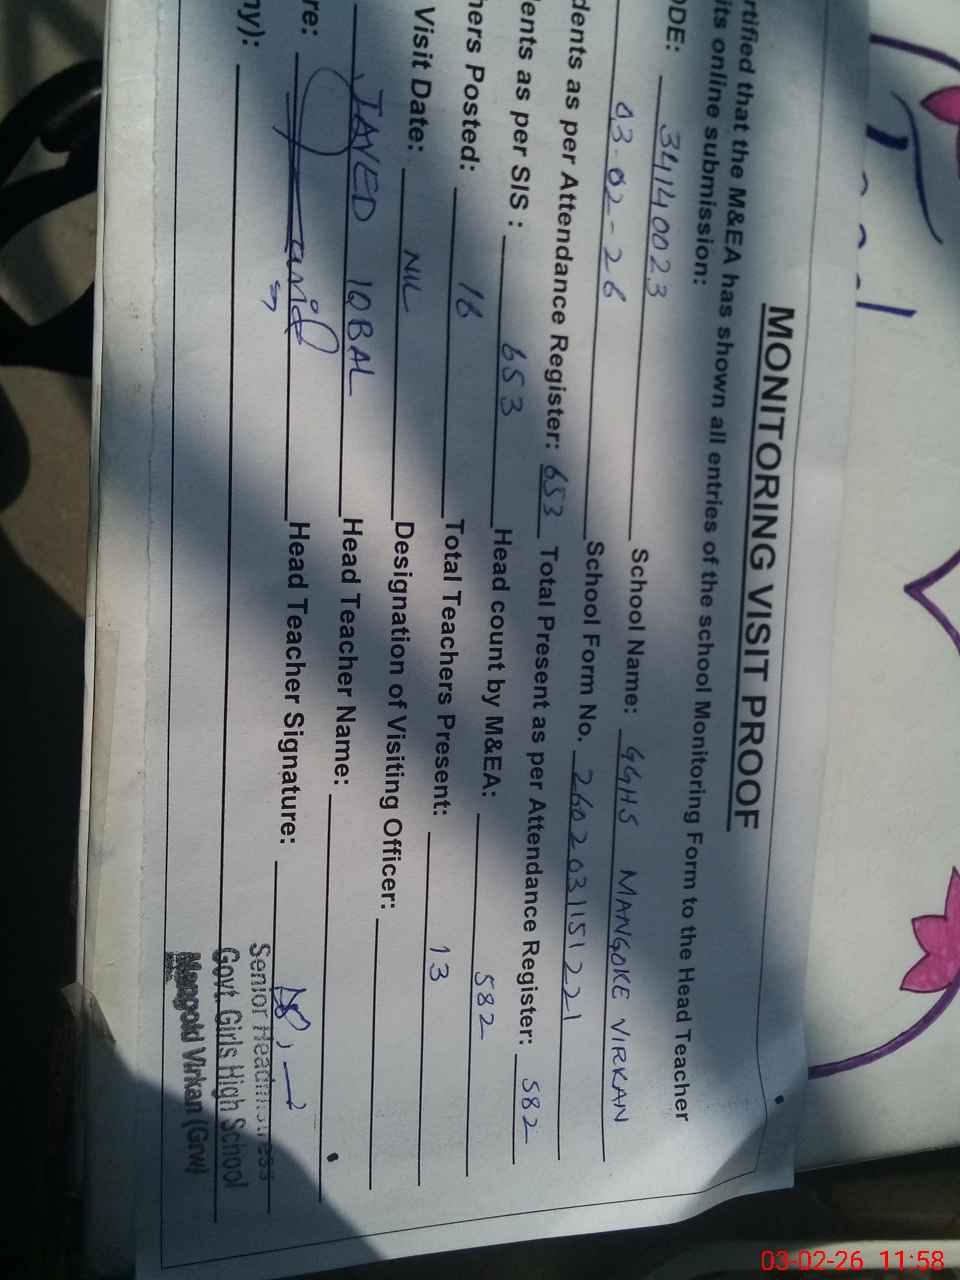 MONITORING VISIT PROOF
rtified that the M&EA has shown all entries of the school Monitoring Form to the Head Teacher
its online submission:
ODE: 34140023 School Name: GGHS MANGOKE VIRKAN
03-02-26 School Form No. 2602031151221
dents as per Attendance Register: 653 Total Present as per Attendance Register: 582
ents as per SIS : 653 Head count by M&EA: 582
hers Posted: 16 Total Teachers Present: 13
Visit Date: NIL Designation of Visiting Officer:
JAVED IQBAL Head Teacher Name:
re: Head Teacher Signature:
ny):
Senior Headmistress
Govt. Girls High School
Mangoki Virkan (Grw)
03-02-26 11:58